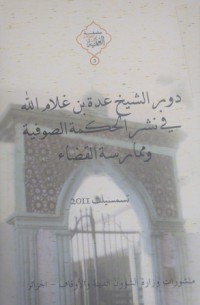 دور الشيخ عدة بن غلام الله
في نشر الحكمة الصوفية
وممارسة القضاء
تسمسيلت 2011
منشورات وزارة الشؤون الدينية والأوقاف - الجزائر